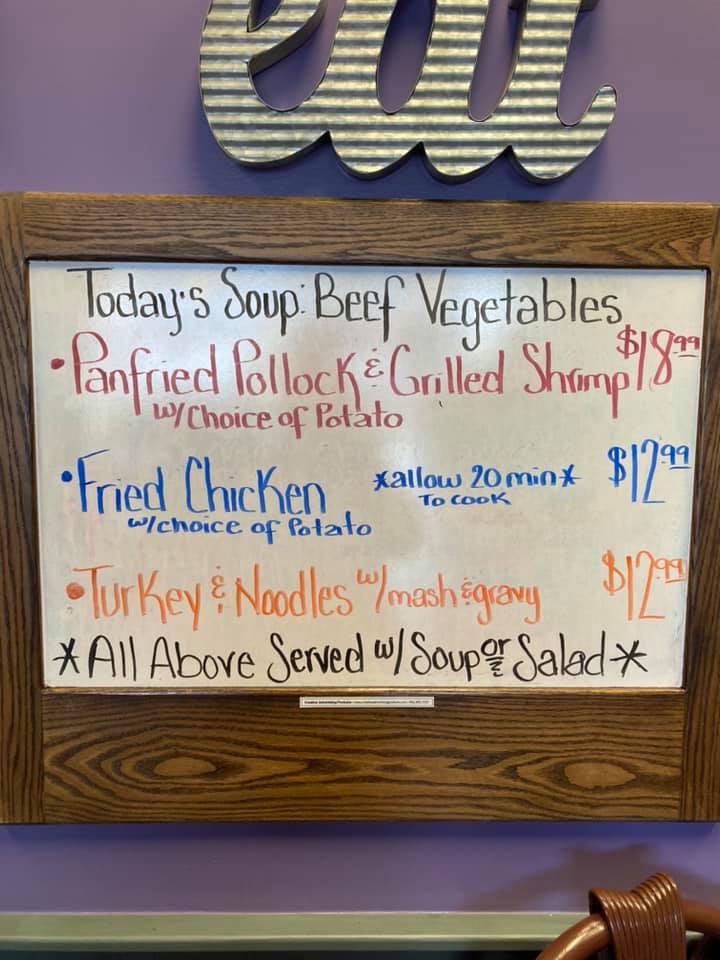 eat
Today's Soup: Beef Vegetables
• Panfried Pollock & Grilled Shrimp $18.99
w/ Choice of Potato
• Fried Chicken *allow 20 min* $12.99
To cook
w/ choice of Potato
• Turkey & Noodles w/ mash & gravy $12.99
* All Above Served w/ Soup or Salad *